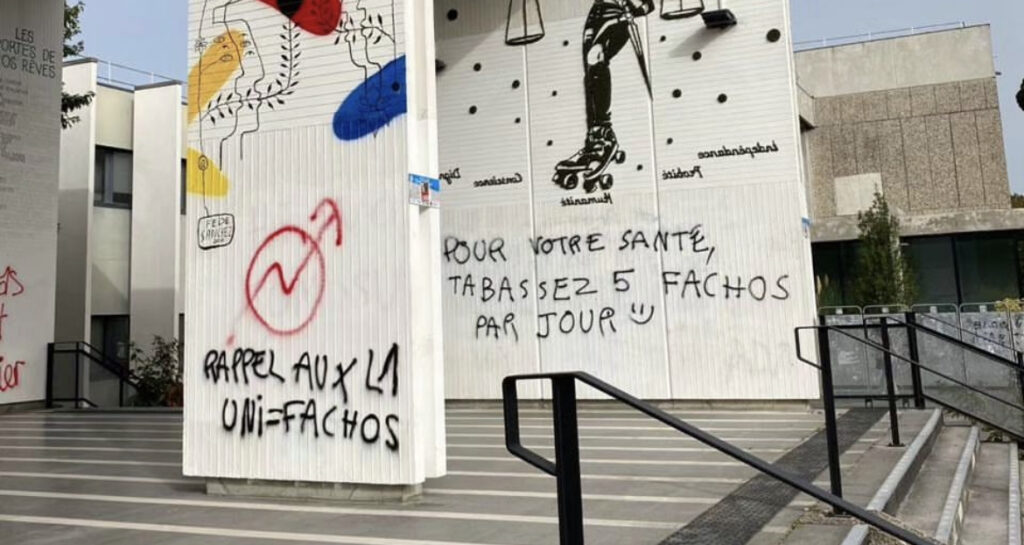 LES
PORTES DE
NOS RÊVES
FEDE
SANCHEZ
Dign
Conscience
Humanité
Probité
Indépendance
RAPPEL AUX L1
UNI=FACHOS
POUR VOTRE SANTÉ,
TABASSEZ 5 FACHOS
PAR JOUR